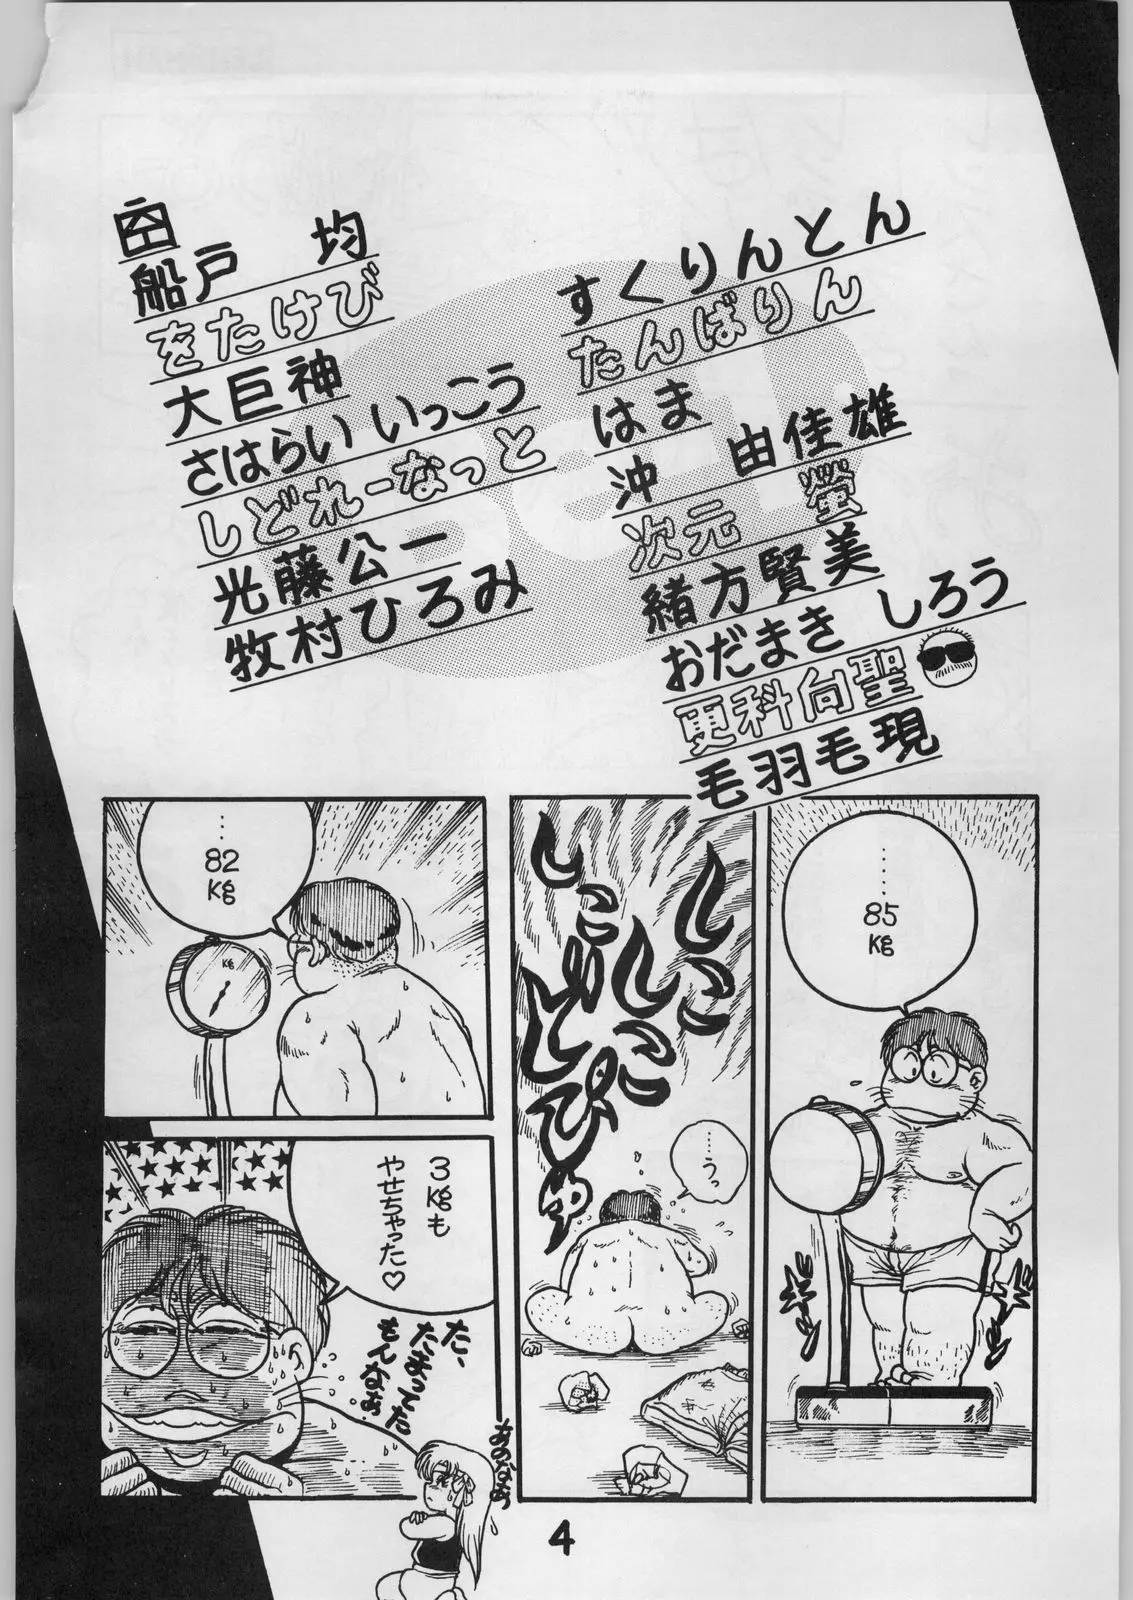 船戸 均
をたけび
大巨神
さはらい いっこう
しどれーなっと
光藤公一
牧村ひろみ
すくりんとん
たんばりん
はま
沖 由佳雄
次元 螢
緒方賢美
おだまき しろう
更科向聖
毛羽毛現
……
85
kg
しこ
しこ
しこ
しこ
どぴゅ
…うっ
…
82
kg
kg
3kgも
やせちゃった♡
た、
たまってた
もんなぁ。
あのなぁっ
4